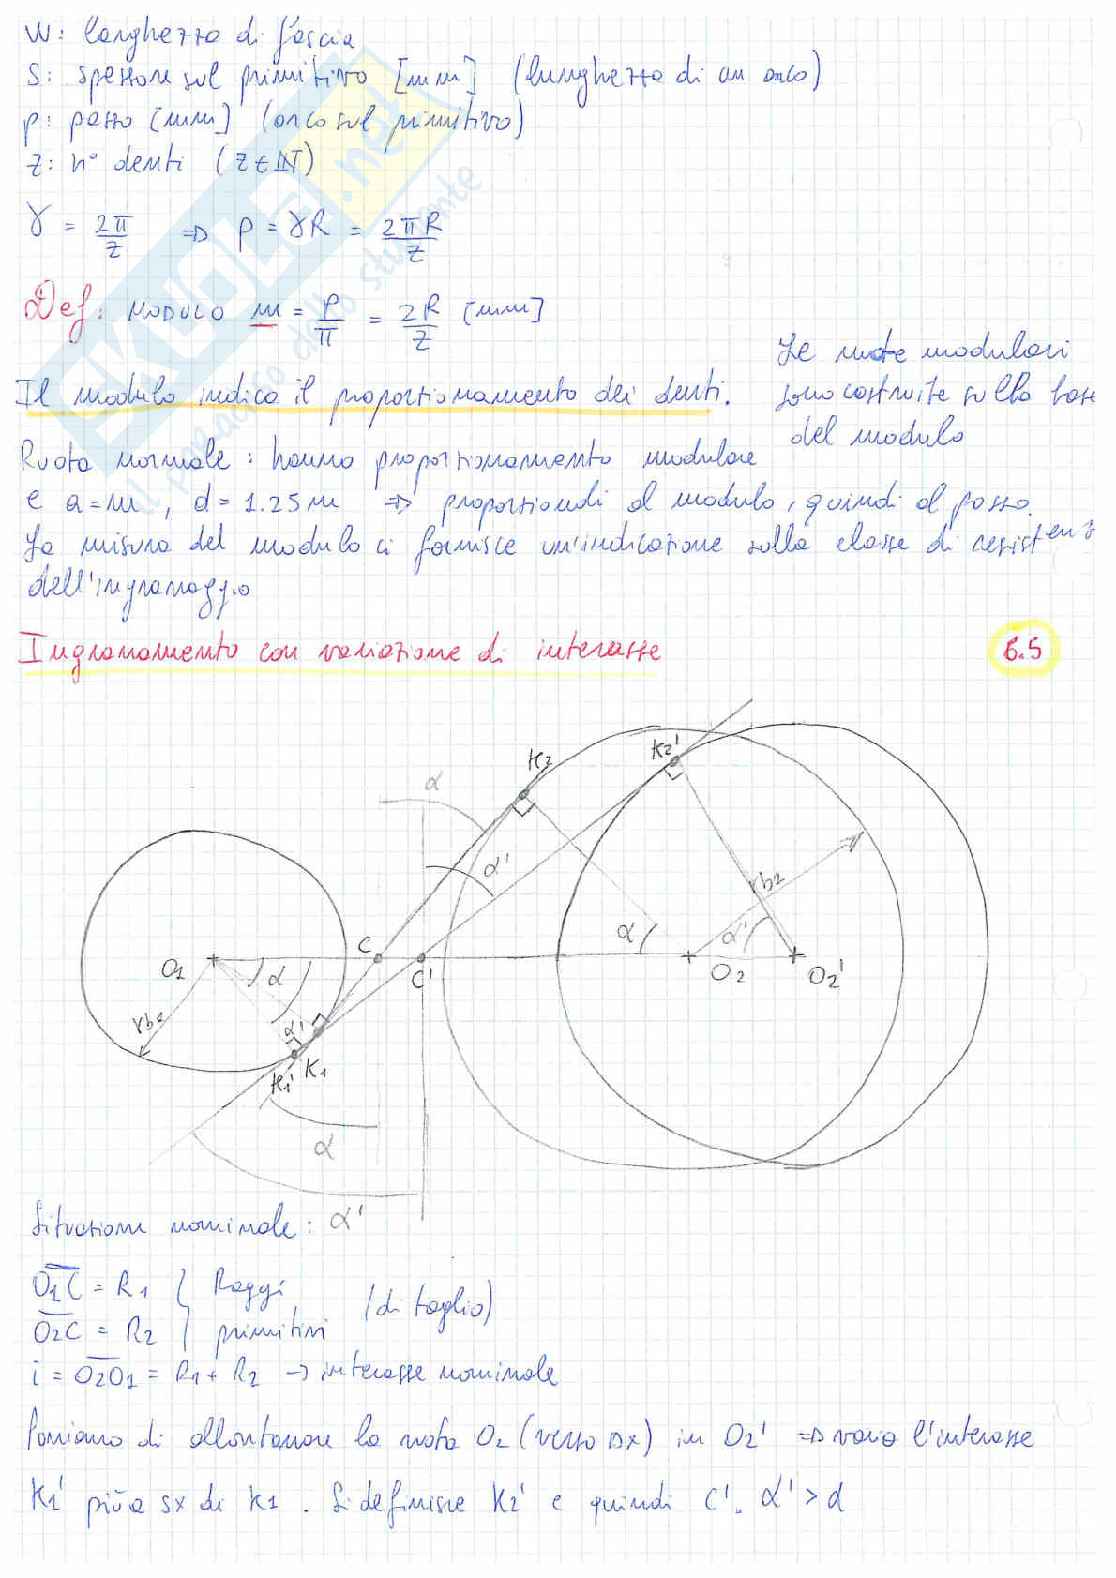 W: larghezza di fascia
S: spessore sul primitivo [mm] (lunghezza di un arco)
p: passo [mm] (arco sul primitivo)
Z: n° denti (Z ∈ ℕ)
γ = 2π/Z ⇒ p = γR = 2πR/Z
Def: MODULO m = p/π = 2R/Z [mm]
Il modulo indica il proporzionamento dei denti.
Le ruote modulari
sono costruite sulla base
del modulo
Ruota normale: hanno proporzionamento modulare
e a=m, d=1.25m ⇒ proporzionali al modulo, quindi al passo.
La misura del modulo ci fornisce un'indicazione sulla classe di resistenza
dell'ingranaggio
Ingranamento con variazione di interasse
6.5
K2
K2'
α
α'
rb2
α
α'
C
C'
O1
O2
O2'
α
α'
rb1
K1
K1'
α
α'
Situazione nominale:
O1C = R1 } Raggi
O2C = R2 } primitivi
(di taglio)
i = O2O1 = R1 + R2 → interasse nominale
Poniamo di allontanare la ruota O2 (verso DX) in O2' ⇒ varia l'interasse
K1' più a sx di K1. Si definisce K2' e quindi C'. α' > α
SKUOLA.net
il paradiso dello studente